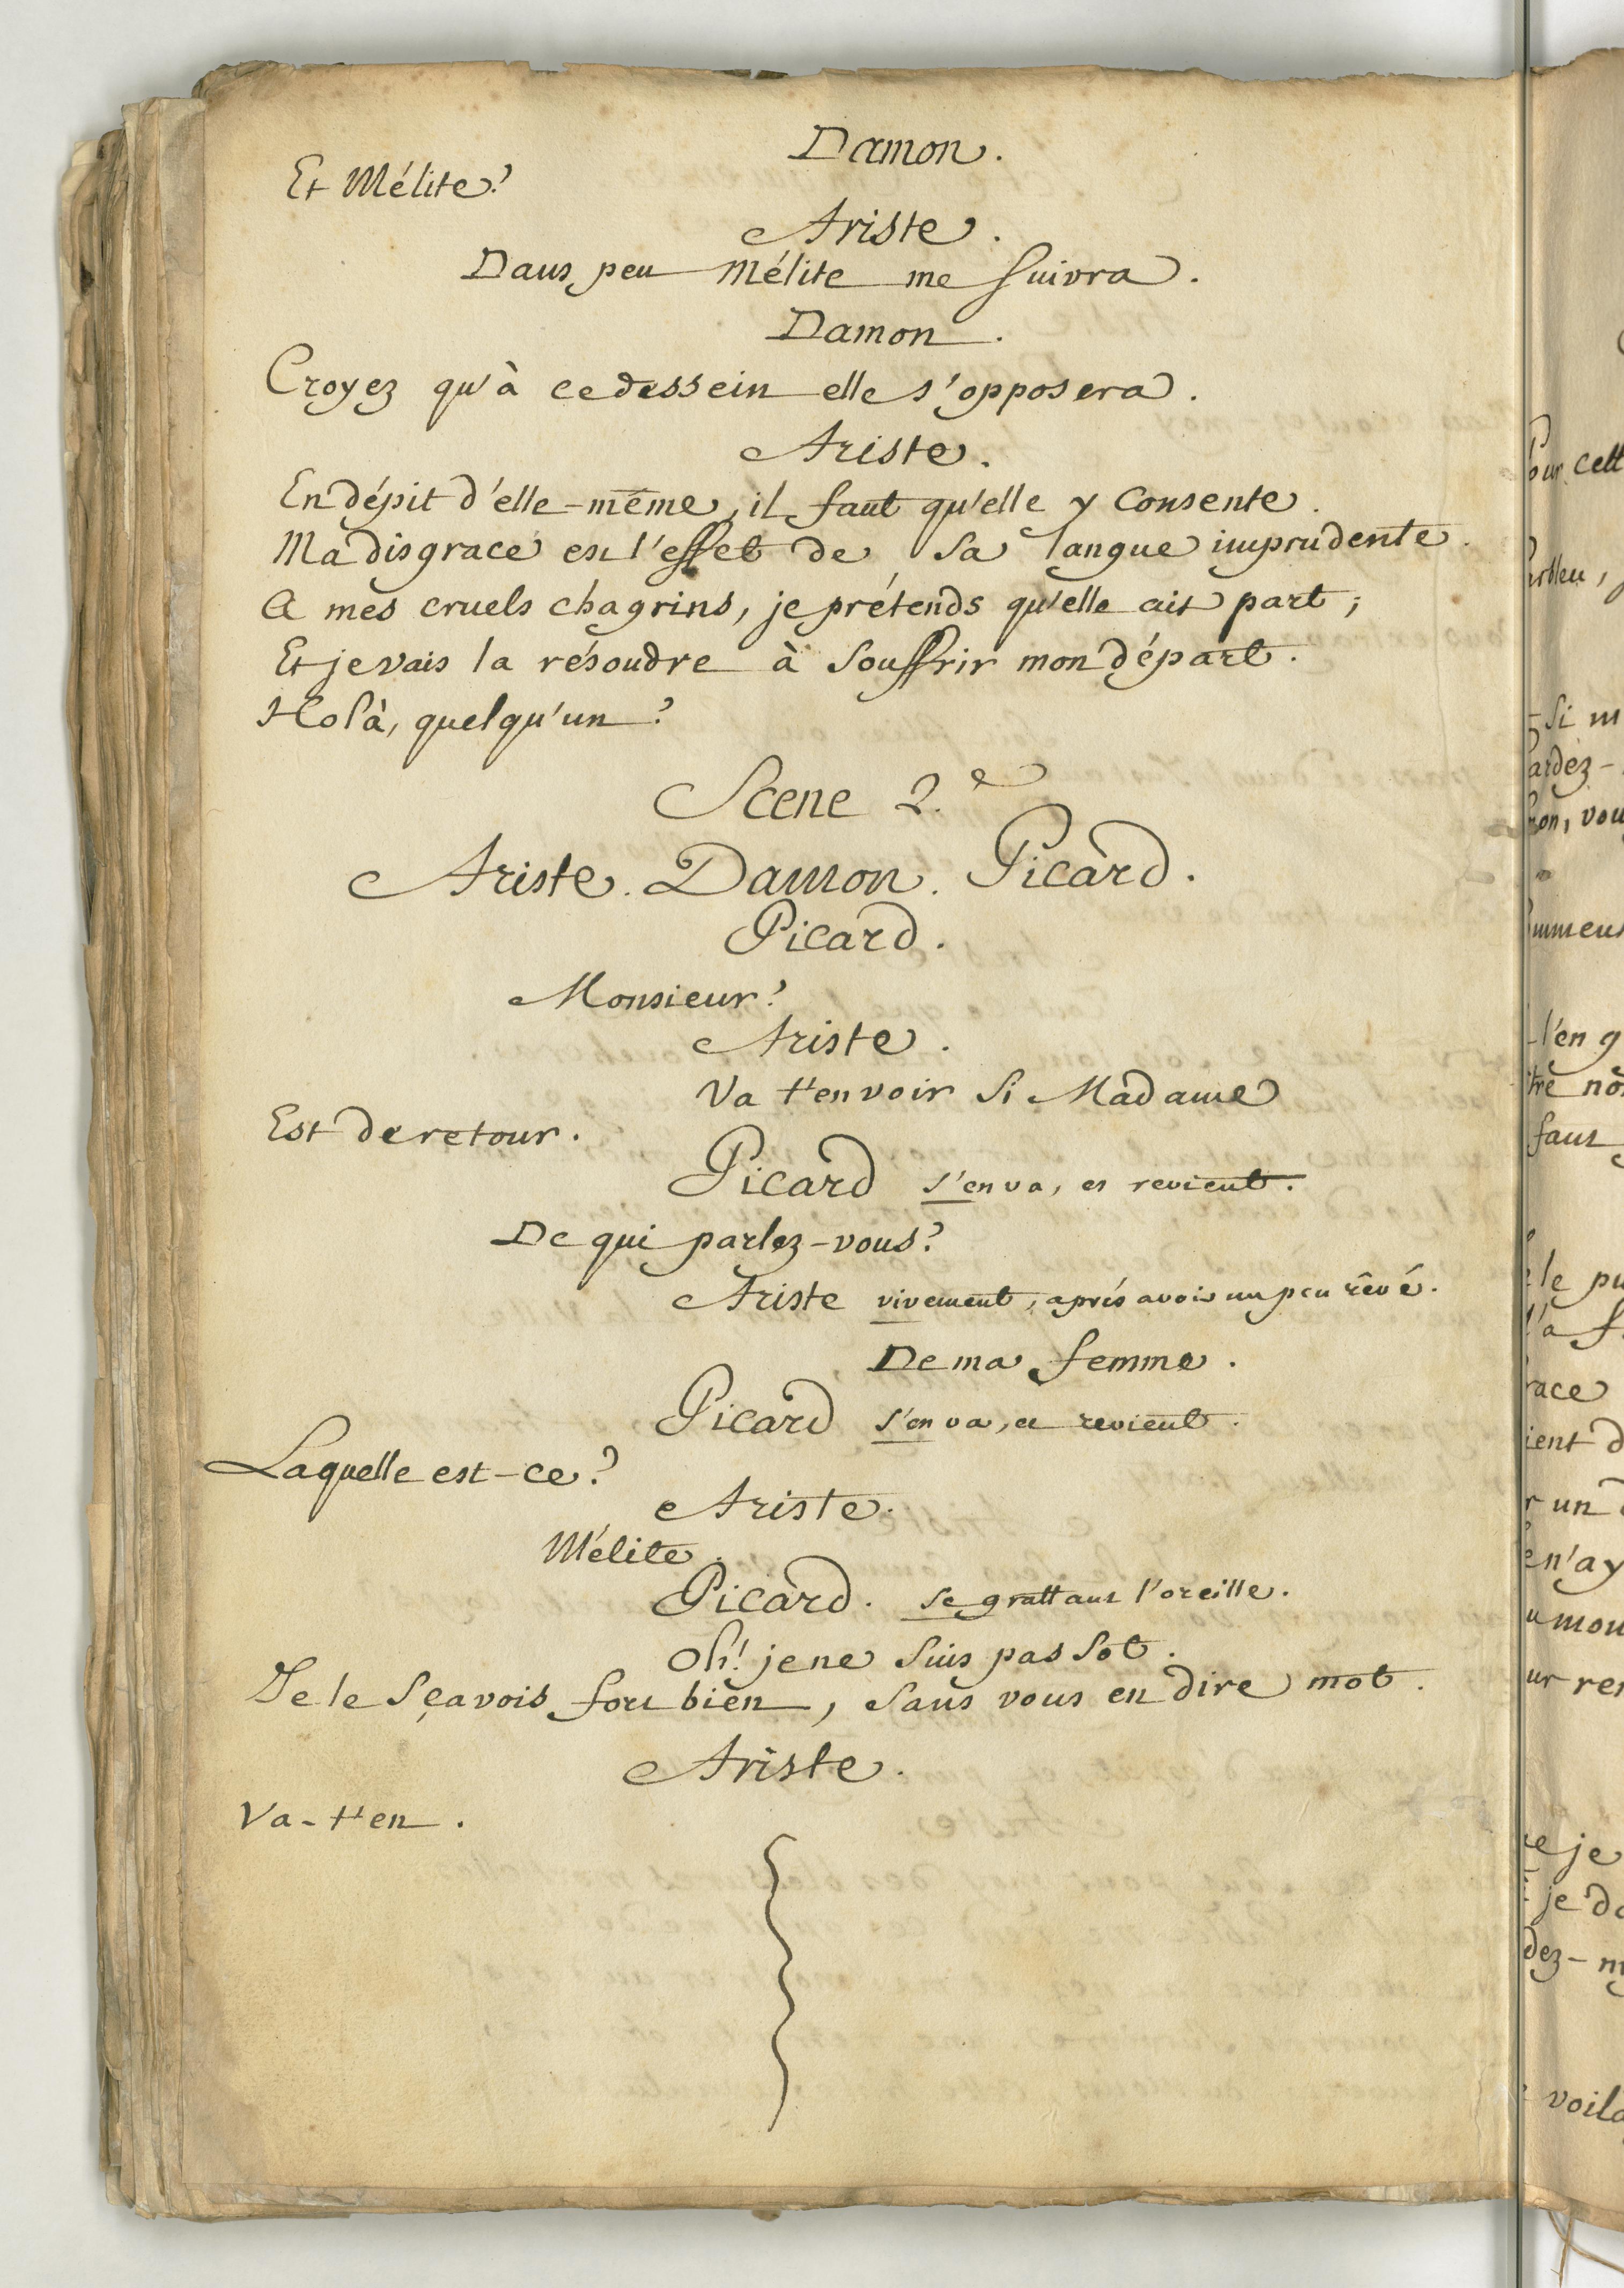 Damon.
Et Mélite?
Ariste.
Dans peu Mélite me suivra.
Damon.
Croyez qu'à ce dessein elle s'opposera.
Ariste.
En dépit d'elle-même, il faut qu'elle y consente.
Ma disgrace est l'effet de sa langue imprudente.
A mes cruels chagrins, je prétends qu'elle ait part;
Et je vais la résoudre à souffrir mon départ.
Holà, quelqu'un?
Scene 2.e
Ariste. Damon. Picard.
Picard.
Monsieur?
Ariste.
Va t'en voir si Madame
Est de retour.
Picard s'en va, et revient.
De qui parlez-vous?
Ariste vivement, aprés avoir un peu rêvé.
De ma femme.
Picard s'en va, et revient.
Laquelle est-ce?
Ariste.
Mélite.
Picard. se grattant l'oreille.
Oh! je ne suis pas sot.
Je le sçavois fort bien, sans vous en dire mot.
Ariste.
Va-t'en.